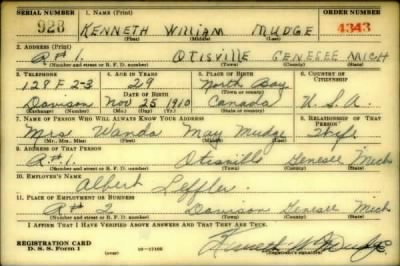 SERIAL NUMBER 1. NAME (Print) ORDER NUMBER
928 KENNETH WILLIAM MUDGE 4343
(First) (Middle) (Last)
2. ADDRESS (Print)
R#1. OTISVILLE GENESEE MICH
(Number and street or R. F. D. number) (Town) (County) (State)
3. TELEPHONE 4. AGE IN YEARS 5. PLACE OF BIRTH 6. COUNTRY OF CITIZENSHIP
128 F 2-3 29 North Bay
DATE OF BIRTH (Town or county)
Davison Nov 25 1910 Canada U.S.A.
(Exchange) (Number) (Mo.) (Day) (Yr.) (State or country)
7. NAME OF PERSON WHO WILL ALWAYS KNOW YOUR ADDRESS 8. RELATIONSHIP OF THAT PERSON
Mrs Wanda May Mudge Wife
(Mr., Mrs., Miss) (First) (Middle) (Last)
9. ADDRESS OF THAT PERSON
R#1. Otisville Genesee Mich
(Number and street or R. F. D. number) (Town) (County) (State)
10. EMPLOYER'S NAME
Albert Leffler
11. PLACE OF EMPLOYMENT OR BUSINESS
R#2 Davison Genesee Mich
(Number and street or R. F. D. number) (Town) (County) (State)
I AFFIRM THAT I HAVE VERIFIED ABOVE ANSWERS AND THAT THEY ARE TRUE.
REGISTRATION CARD
D. S. S. Form 1 Kenneth W Mudge
(Registrant's signature)